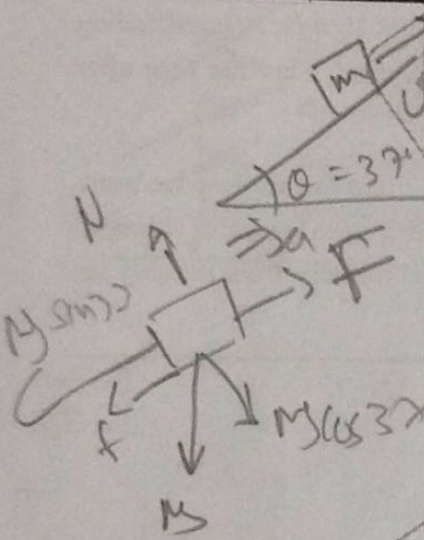 m
θ = 37°
N
a
F
Mg sin37
f
Mg cos37
Mg